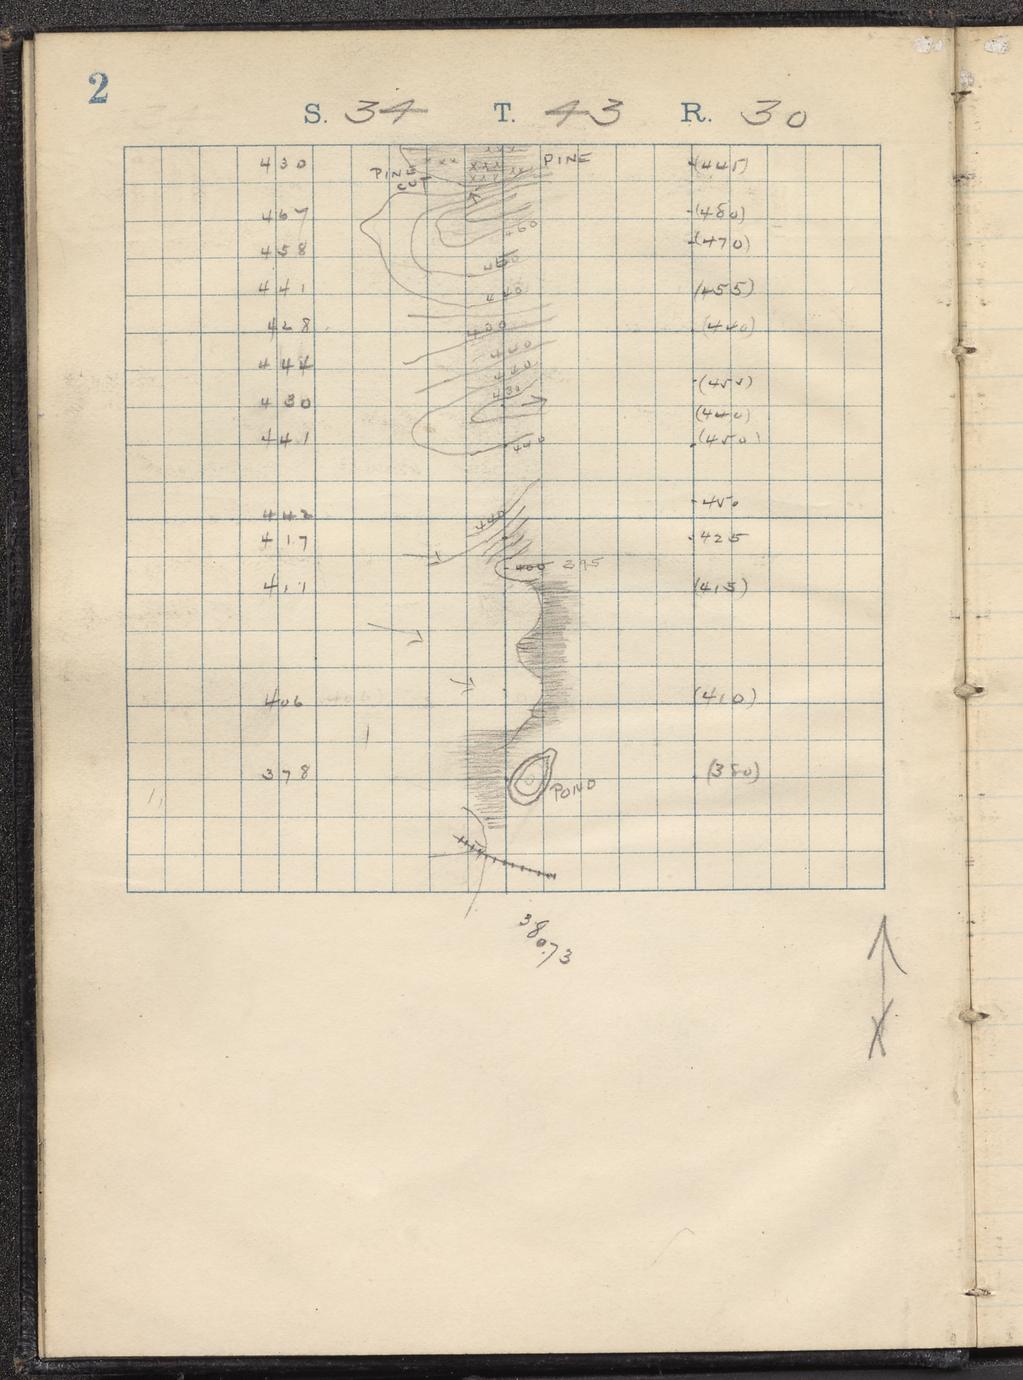 2
S. 34 T. 43 R. 30
430 PINE (445)
PINE
CUT
467 (480)
460
458 (470)
450
441 440 (455)
428 430 (440)
440
444 440
430 (455)
430 (440)
441 440 (450)
450
442 440
417 425
400 395
411 (415)
406 (410)
378 (380)
POND
380.73